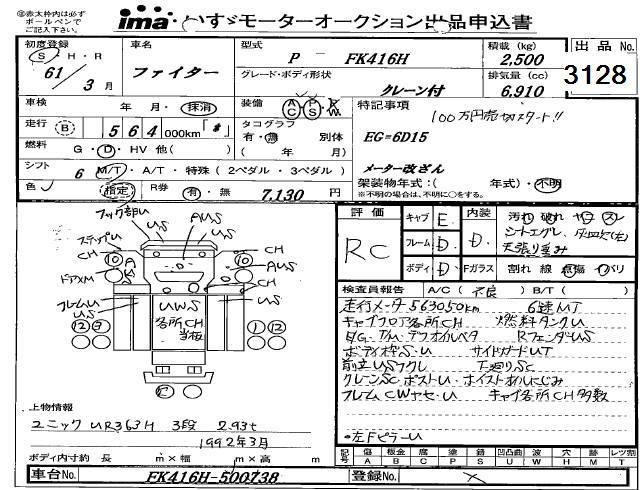 ◎赤太枠内は必ずペンで
ご記入下さい。
ima いすゞモーターオークション出品申込書
初度登録
S・H・R
61/3月
車名
ファイター
型式
P － FK416H
グレード・ボディ形状
クレーン付
積載(kg)
2,500
排気量(cc)
6,910
出品No.
3128
車検 年・月・抹消
装備 AC PS PW
走行 B 564 000km「#」
タコグラフ
有・無 別体
( 年 月)
燃料 G・D・HV 他( )
シフト 6 M/T・A/T・特殊(2ペダル・3ペダル)
色 指定 R券 有・無 7,130円
特記事項
100万円売切スタート!!
EG=6D15
メーター改ざん
架装物年式:( 年式)・不明
※不明の場合は、不明に○をする。
評価
RC
キャブ E
フレーム D
ボディ D
内装 D
汚れ 破れ ヤケ スレ
シートエグレ、
天張り歪み
Fガラス 割れ 線 点傷 イバリ
検査員報告 A/C(不良)B/T( )
走行メータ563050km 6速MT
キャブフロア各所CH 燃料タンクU
RフェンダーUS
ボディ枠S・U サイドガードUT
下廻りSC
クレーンSC ポストU・ホイストオイルにじみ
フレームCWヤセ・U キャブ各所CH多数
・左FピラーU
フック部U
US
AUS
ステップU
CH
10
ドアXM
フレームU
US
UWS
各所CH
CH
AUS
CH
US
12
上物情報
ユニック UR363H 3段 2.93t
1992年3月
ボディ内寸約 長 m×幅 m×高 m
記号 傷 A 板金 B 腐食 C 部品 P 錆 S 凹凸曲 U 波 W 穴 H 跡 M レツ割 T
車台No. FK416H-500738
登録No.